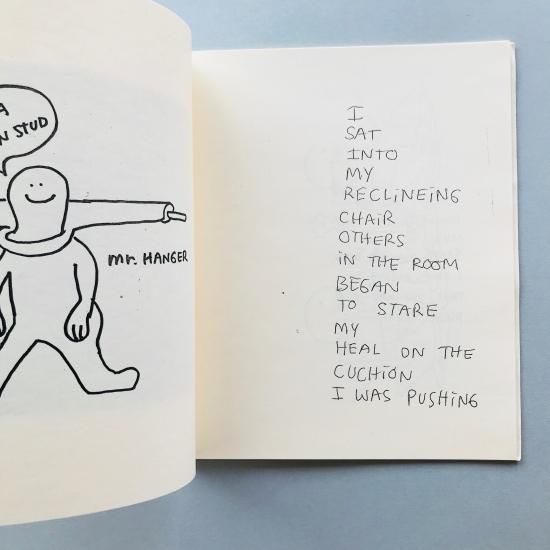 A
N STUD
mr. HANGER
I
SAT
INTO
MY
RECLINEING
CHAIR
OTHERS
IN THE ROOM
BEGAN
TO STARE
MY
HEAL ON THE
CUCHION
I WAS PUSHING